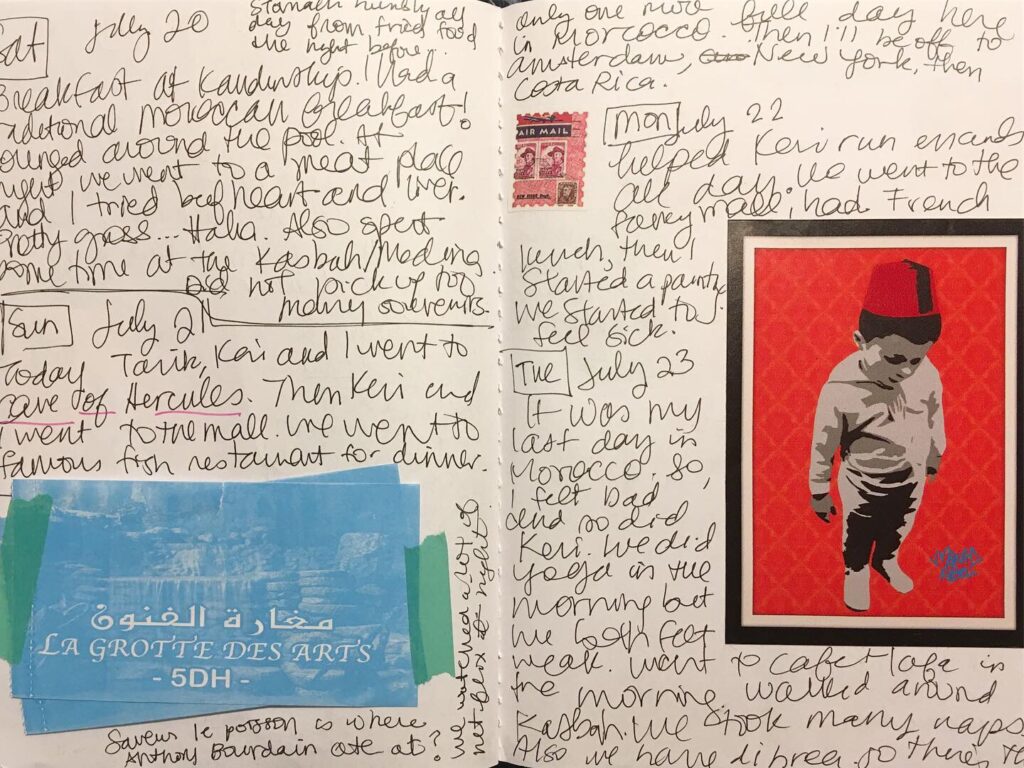 Sat
July 20
Stomach all
day from fried food
the night before..
Breakfast at I had a
traditional moroccan breakfast!
lounged around the pool. At
night we went to a meat place
and I tried beef heart and liver.
Pretty gross... Haha. Also spent
some time at the Kasbah/Medina
Did not pick up too
many souvenirs.
Sun
July 21
Today Tarik, Keri and I went to
Cave of Hercules. Then Keri and
I went to the mall. We went to
famous fish restaurant for dinner.
مغارة الفنون
LA GROTTE DES ARTS
- 5DH -
Saveur le poisson is where
Anthony Bourdain ate at?
we watched a lot of
netflix at night
only one more full day here
in Morocco. Then I'll be off to
Amsterdam, New York, then
Costa Rica.
AIR MAIL
Mon
July 22
helped Keri run errands
all day. We went to the
fancy mall, had French
lunch, then I
started a painting.
we started to
feel sick.
Tue
July 23
It was my
last day in
Morocco. So,
I felt bad
and so did
Keri. We did
yoga in the
morning but
we both felt
weak. Went
to cafe Hafa in
the morning. walked around
Kasbah. We took many naps.
Also we have so there's